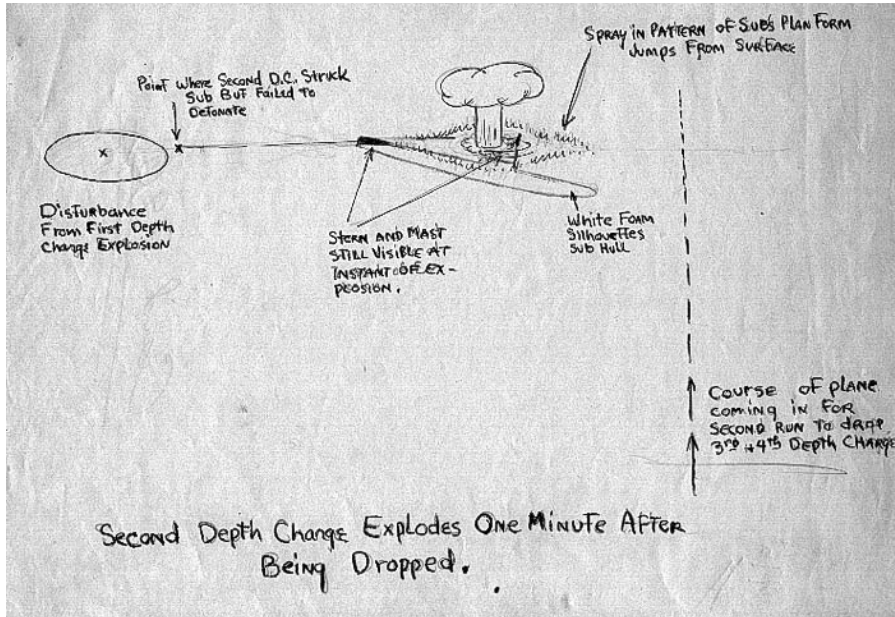 Spray in Pattern of Sub's Plan Form
Jumps From Surface
Point Where Second D.C. Struck
Sub But Failed to
Detonate
x
x
Disturbance
From First Depth
Charge Explosion
Stern and Mast
Still Visible At
Instant of Ex-
plosion.
White Foam
Silhouettes
Sub Hull
Course of plane
coming in for
Second Run to drop
3rd + 4th Depth Charge
Second Depth Charge Explodes One Minute After
Being Dropped.